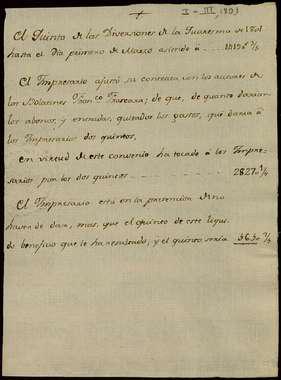 I - III, 1801
El Quinto de las Diversiones de la Quaresma de 1801
hasta el dia primero de Marzo asciende á
El Impresario ajustó su contrata con los autores de
los Bolatines Franco de que, de quanto darian
los abonos, y entradas, quitados los gastos, que daria á
los Impresarios dos quintos.
en virtud de este convenio ha tocado á los Impre-
sarios por los dos quintos 2827
El Impresario está en la pretencion de no
haver de dar, mas, que el quinto de este
de beneficio que le ha resultado, y el quinto seria